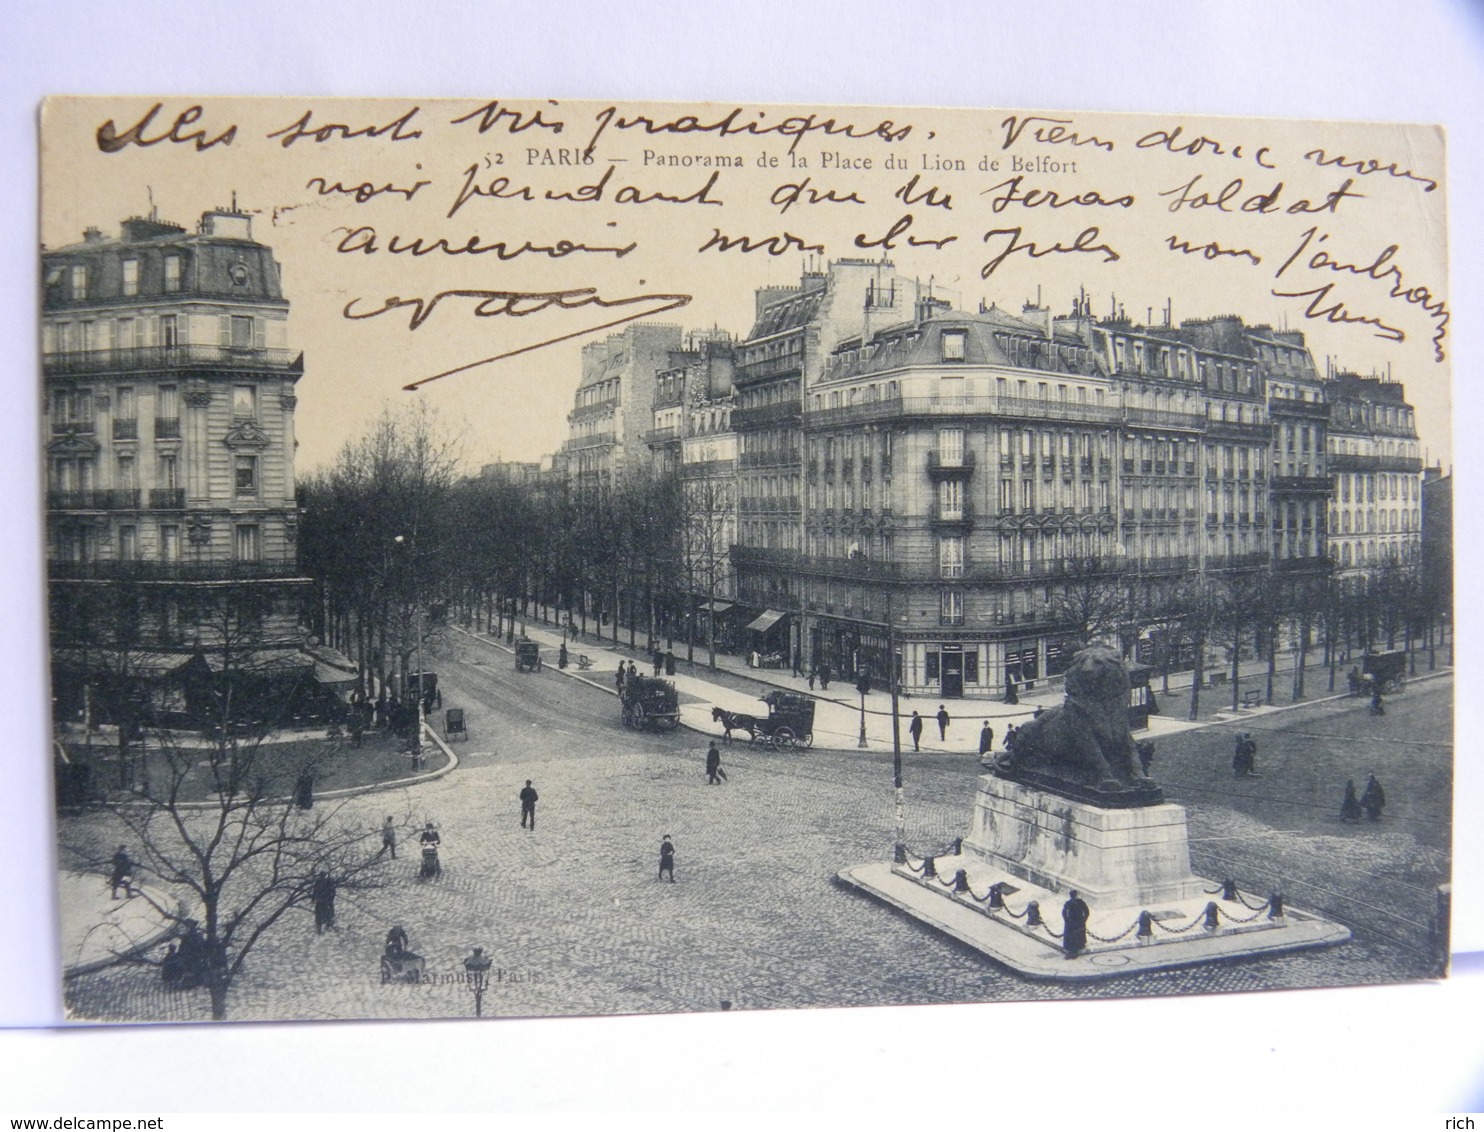 elles sont très pratiques. Viens donc nous
52 PARIS — Panorama de la Place du Lion de Belfort
voir pendant que tu seras soldat
aurevoir mon cher Jules nous t'embrassons
tous
P. Marmuse, Paris
www.delcampe.net
rich